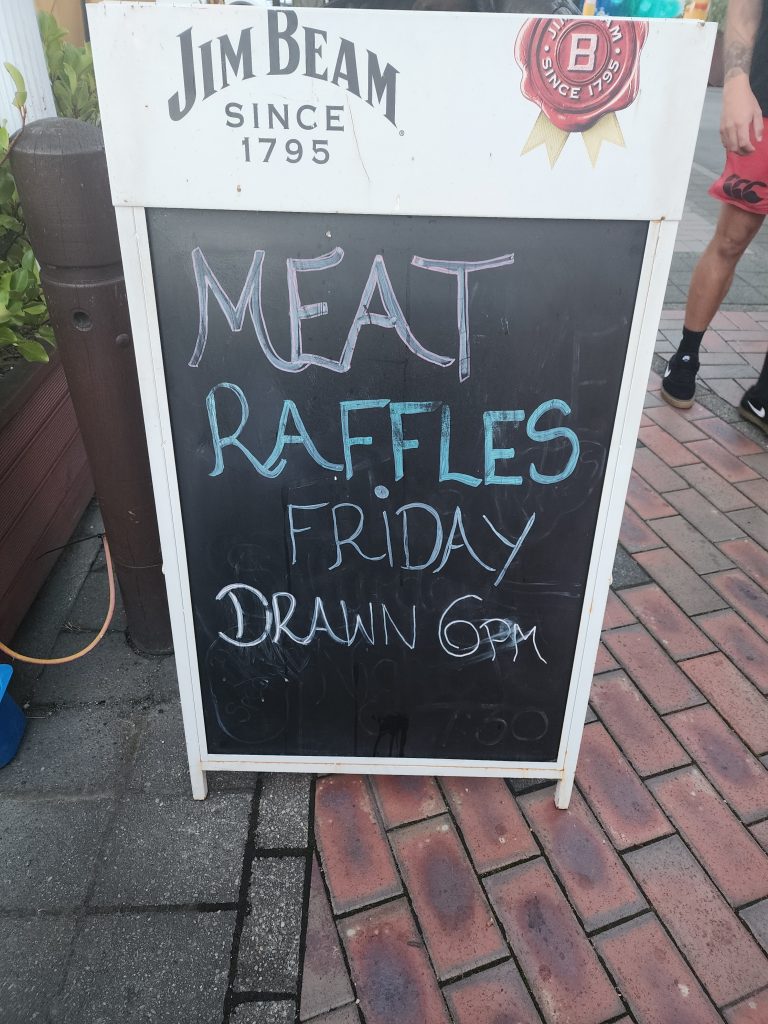 JIM BEAM
SINCE
1795
JIM BEAM
B
SINCE 1795
MEAT
RAFFLES
FRIDAY
DRAWN 6PM
7:30